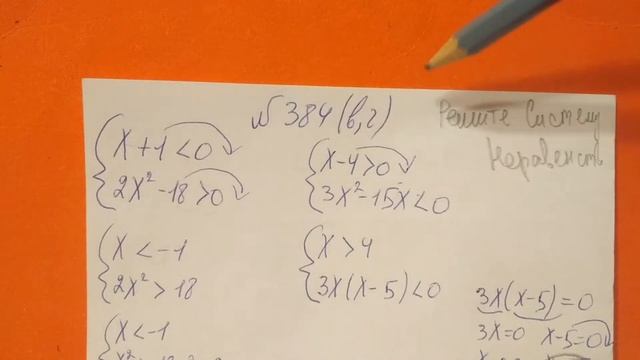 № 384 (в,г)
Решите Систему
Неравенств
x+1<0
2x²-18>0
x<-1
2x²>18
x<-1
x-4>0
3x²-15x<0
x>4
3x(x-5)<0
3x(x-5)=0
3x=0 x-5=0